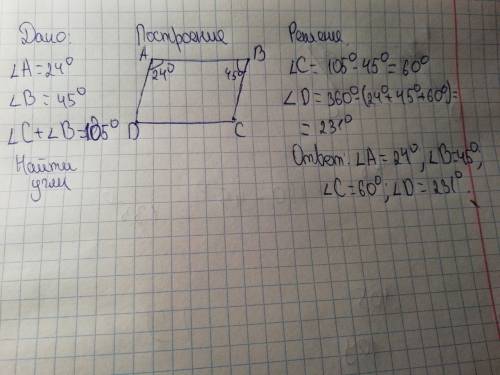 Дано:
∠A = 24°
∠B = 45°
∠C + ∠B = 105°
Найти
углы
Построение
A B
24° 45°
D C
Решение
∠C = 105° - 45° = 60°
∠D = 360° - (24° + 45° + 60°) =
= 231°
Ответ: ∠A = 24°, ∠B = 45°,
∠C = 60°; ∠D = 231°.